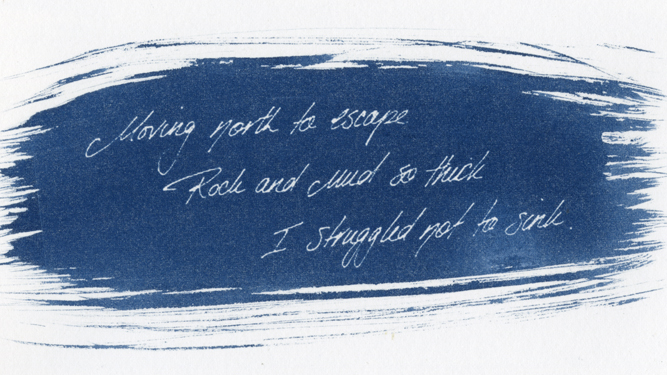 Moving north to escape
Rock and Mud so thick
I struggled not to sink.